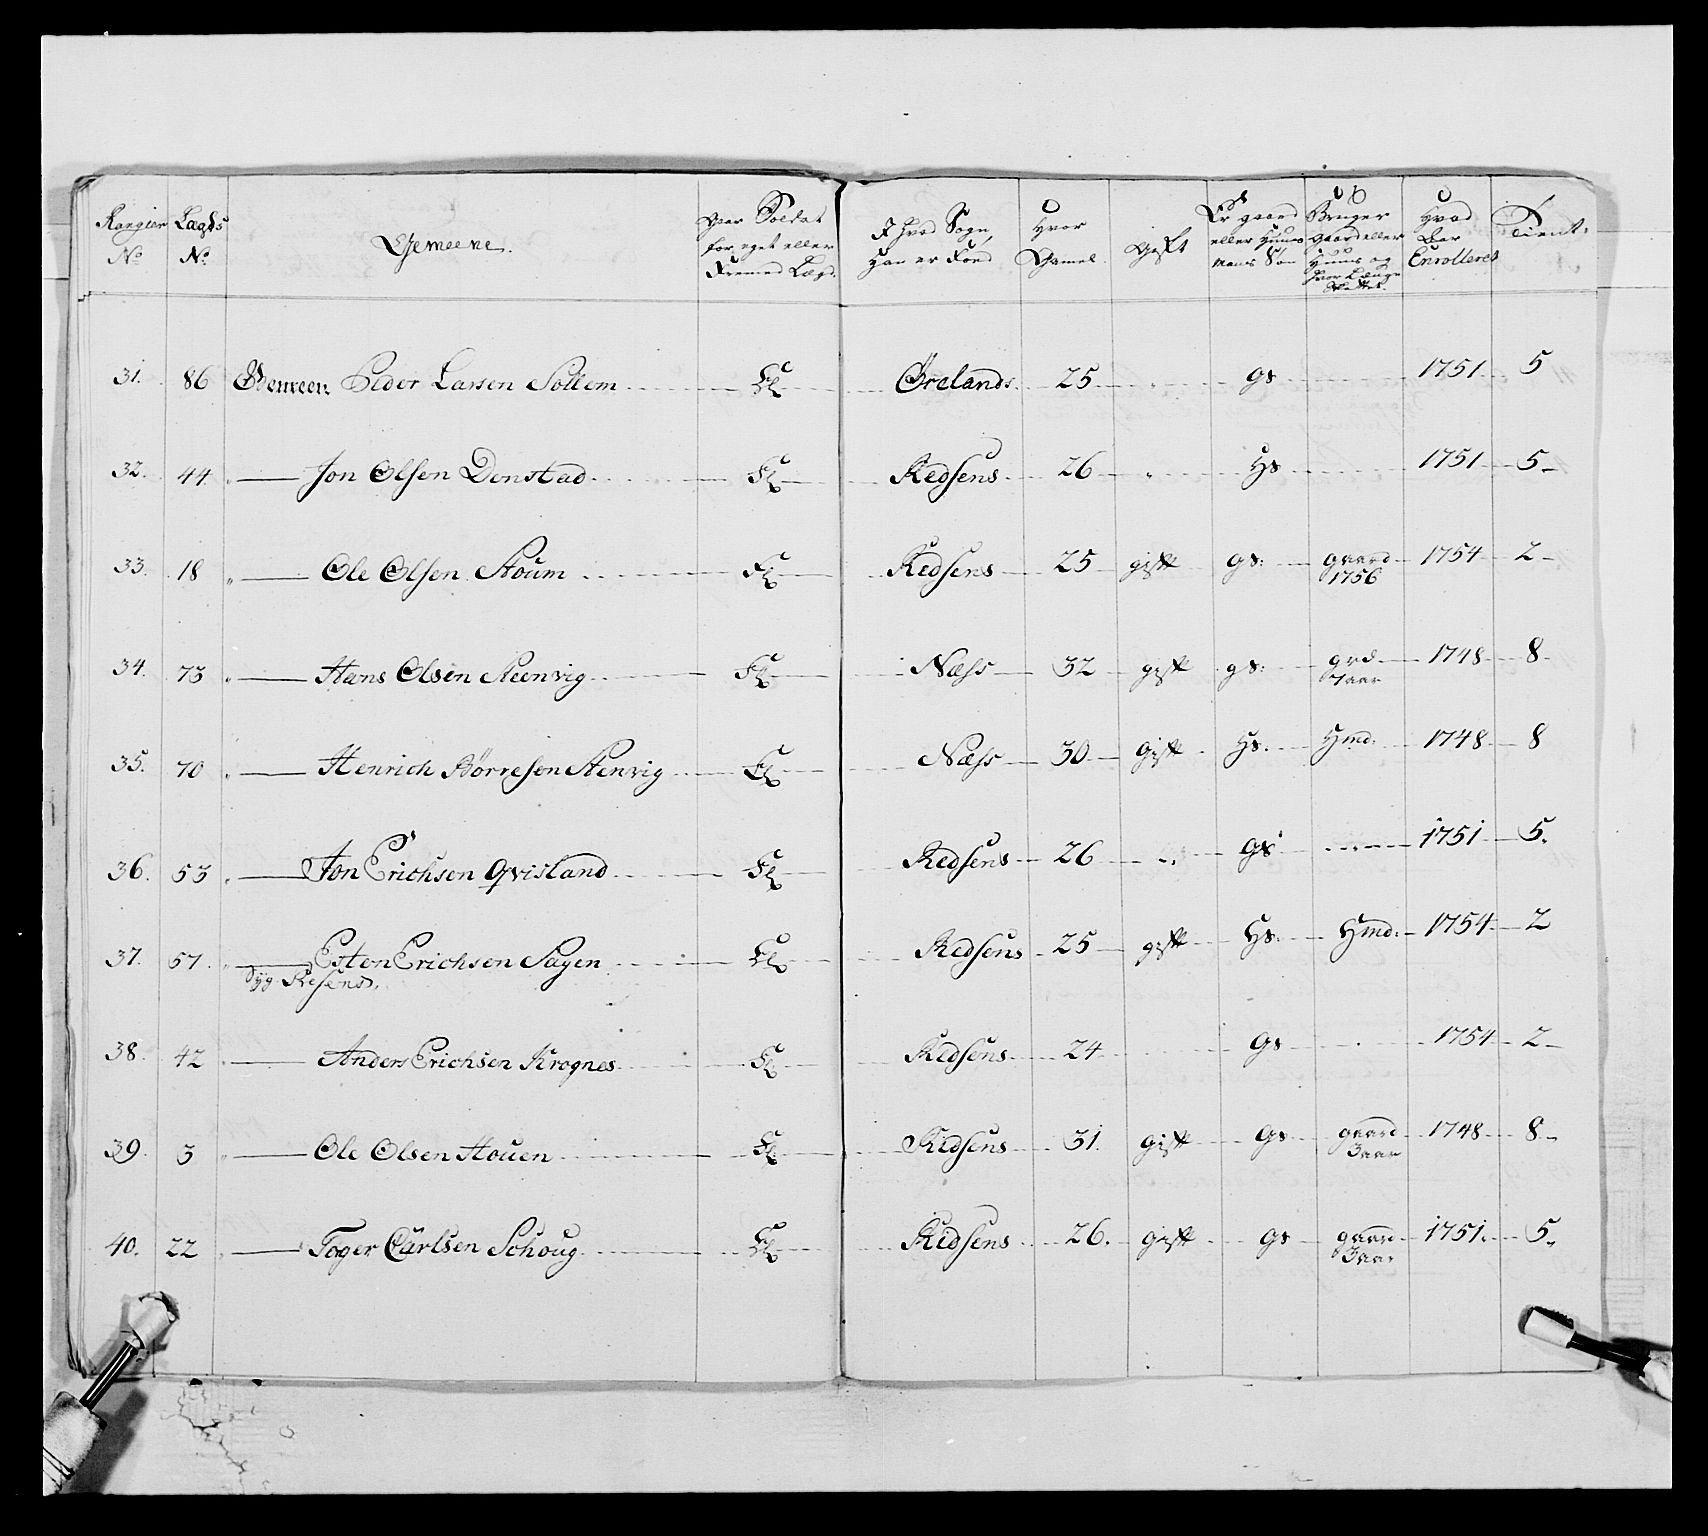 Rangier No
Lægds No
Gemeene.
War Soldat for eget eller Fremed Lægd.
I hvad Sogn, Han er Föd
Hvor Gamel
Gift
Er gaard eller Huus mans Søn
Bruger gaard eller Huus og hvor Længe
Hvad Aar Enrolleret
Tient.
31. 86 Gemeen: Peder Larsen Sollem El Örelands 25 " gs 1751 5
32. 44 " Jon Olsen Donstad Fl Redsens 26 " Hs 1751 5
33. 18 " Ole Olsen Houm Fl Redsens 25 gift gs: gaard 1754 2
1756
34. 73 " Hans Olsen Steenvig Fl Næss 32 gift gs: grd 1748 8
7 aar
35. 70 " Henrich Börresen Stenvig El Næss 30 Gift Hs. Hmd. 1748 8
36. 53 " Jon Erichsen Qvisland Fl Redsens 26 " gs 1751 5.
37. 57 " Esten Erichsen Sagen El Redsens 25 gift Hs. Hmd. 1754 2
Syg Resens.
38. 42 " Anders Erichsen Krognes Fl Redsens 24 Gs 1754 2
39. 3 " Ole Olsen Houen Fl Redsens 31. gift Gs gaard 1748 8
3 aar
40. 22 " Toger Carlsen Schoug El Redsens 26. gift gs gaard 1751. 5
3 aar